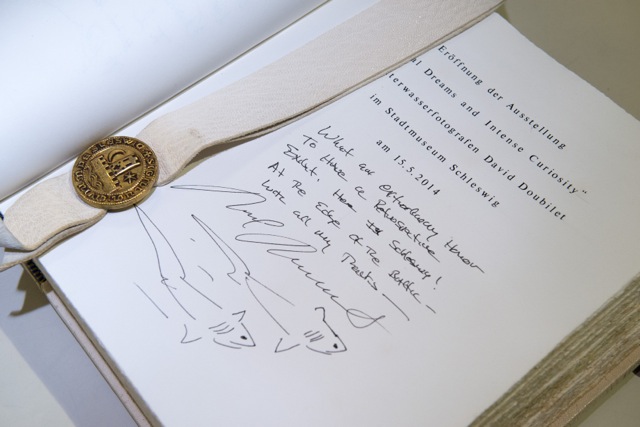 Eröffnung der Ausstellung
al Dreams and Intense Curiosity"
terwasserfotografen David Doubilet
im Stadtmuseum Schleswig
am 15.5.2014
What an extraordinary Honor
To Have a Retrospective
Exhibit, Here Schleswig!
At The Edge of The Baltic —
with all my Thanks —